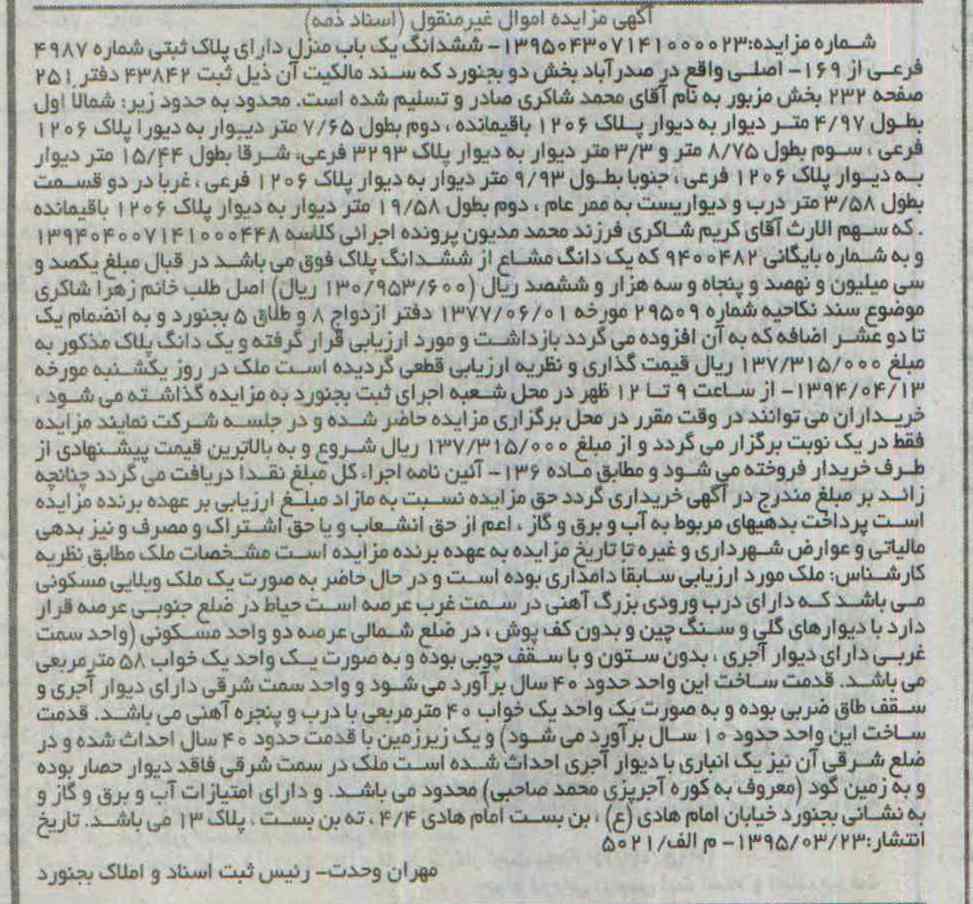 آگهی مزایده اموال غیرمنقول (اسناد ذمه)
شماره مزایده:۱۳۹۵۰۴۳۰۷۱۴۱۰۰۰۰۲۳- ششدانگ یک باب منزل دارای پلاک ثبتی شماره ۴۹۸۷
فرعی از ۱۶۹- اصلی واقع در صدرآباد بخش دو بجنورد که سند مالکیت آن ذیل ثبت ۴۳۸۴۲ دفتر ۲۵۱
صفحه ۲۳۲ بخش مزبور به نام آقای محمد شاکری صادر و تسلیم شده است. محدود به حدود زیر: شمالا اول
بطول ۴/۹۷ متر دیوار به دیوار پلاک ۱۲۰۶ باقیمانده ، دوم بطول ۷/۶۵ متر دیوار به دیورا پلاک ۱۲۰۶
فرعی ، سوم بطول ۸/۷۵ متر و ۳/۳ متر دیوار به دیوار پلاک ۳۲۹۳ فرعی، شرقا بطول ۱۵/۴۴ متر دیوار
به دیوار پلاک ۱۲۰۶ فرعی ، جنوبا بطول ۹/۹۳ متر دیوار به دیوار پلاک ۱۲۰۶ فرعی ، غربا در دو قسمت
بطول ۳/۵۸ متر درب و دیواریست به ممر عام ، دوم بطول ۱۹/۵۸ متر دیوار به دیوار پلاک ۱۲۰۶ باقیمانده
. که سهم الارث آقای کریم شاکری فرزند محمد مدیون پرونده اجرائی کلاسه ۱۳۹۴۰۴۰۰۷۱۴۱۰۰۰۴۴۸
و به شماره بایگانی ۹۴۰۰۴۸۲ که یک دانگ مشاع از ششدانگ پلاک فوق می باشد در قبال مبلغ یکصد و
سی میلیون و نهصد و پنجاه و سه هزار و ششصد ریال (۱۳۰/۹۵۳/۶۰۰ ریال) اصل طلب خانم زهرا شاکری
موضوع سند نکاحیه شماره ۲۹۵۰۹ مورخه ۱۳۷۷/۰۶/۰۱ دفتر ازدواج ۸ و طلاق ۵ بجنورد و به انضمام یک
تا دو عشر اضافه که به آن افزوده می گردد بازداشت و مورد ارزیابی قرار گرفته و یک دانگ پلاک مذکور به
مبلغ ۱۳۷/۳۱۵/۰۰۰ ریال قیمت گذاری و نظریه ارزیابی قطعی گردیده است ملک در روز یکشنبه مورخه
۱۳۹۴/۰۴/۱۳- از ساعت ۹ تا ۱۲ ظهر در محل شعبه اجرای ثبت بجنورد به مزایده گذاشته می شود ،
خریداران می توانند در وقت مقرر در محل برگزاری مزایده حاضر شده و در جلسه شرکت نمایند مزایده
فقط در یک نوبت برگزار می گردد و از مبلغ ۱۳۷/۳۱۵/۰۰۰ ریال شروع و به بالاترین قیمت پیشنهادی از
طرف خریدار فروخته می شود و مطابق ماده ۱۳۶- آئین نامه اجرا، کل مبلغ نقدا دریافت می گردد چنانچه
زائد بر مبلغ مندرج در آگهی خریداری گردد حق مزایده نسبت به مازاد مبلغ ارزیابی بر عهده برنده مزایده
است پرداخت بدهیهای مربوط به آب و برق و گاز ، اعم از حق انشعاب و یا حق اشتراک و مصرف و نیز بدهی
مالیاتی و عوارض شهرداری و غیره تا تاریخ مزایده به عهده برنده مزایده است مشخصات ملک مطابق نظریه
کارشناس: ملک مورد ارزیابی سابقا دامداری بوده است و در حال حاضر به صورت یک ملک ویلایی مسکونی
می باشد که دارای درب ورودی بزرگ آهنی در سمت غرب عرصه است حیاط در ضلع جنوبی عرصه قرار
دارد با دیوارهای گلی و سنگ چین و بدون کف پوش ، در ضلع شمالی عرصه دو واحد مسکونی (واحد سمت
غربی دارای دیوار آجری ، بدون ستون و با سقف چوبی بوده و به صورت یک واحد یک خواب ۵۸ مترمربعی
می باشد. قدمت ساخت این واحد حدود ۴۰ سال برآورد می شود و واحد سمت شرقی دارای دیوار آجری و
سقف طاق ضربی بوده و به صورت یک واحد یک خواب ۴۰ مترمربعی با درب و پنجره آهنی می باشد. قدمت
ساخت این واحد حدود ۱۰ سال برآورد می شود) و یک زیرزمین با قدمت حدود ۴۰ سال احداث شده و در
ضلع شرقی آن نیز یک انباری با دیوار آجری احداث شده است ملک در سمت شرقی فاقد دیوار حصار بوده
و به زمین گود (معروف به کوره آجرپزی محمد صاحبی) محدود می باشد. و دارای امتیازات آب و برق و گاز و
به نشانی بجنورد خیابان امام هادی (ع) ، بن بست امام هادی ۴/۴ ، ته بن بست ، پلاک ۱۳ می باشد. تاریخ
انتشار:۱۳۹۵/۰۳/۲۳- م الف/۵۰۲۱
مهران وحدت- رئیس ثبت اسناد و املاک بجنورد